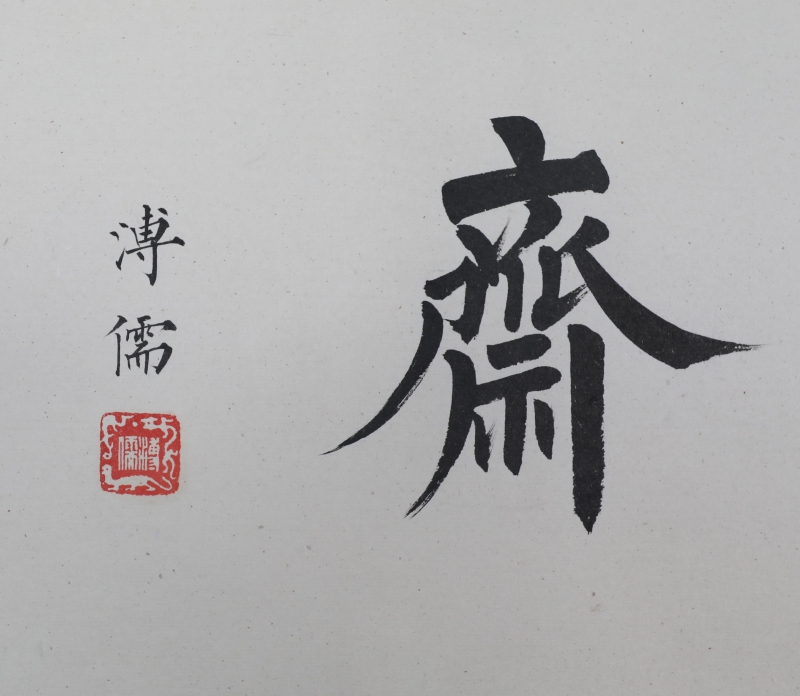 齋
溥儒
溥儒